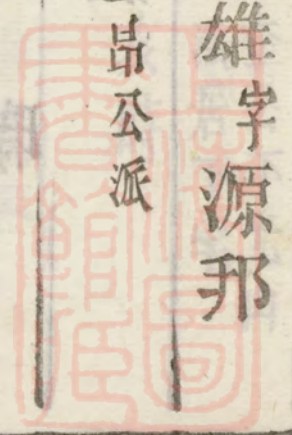 雄字源邦
昂公派